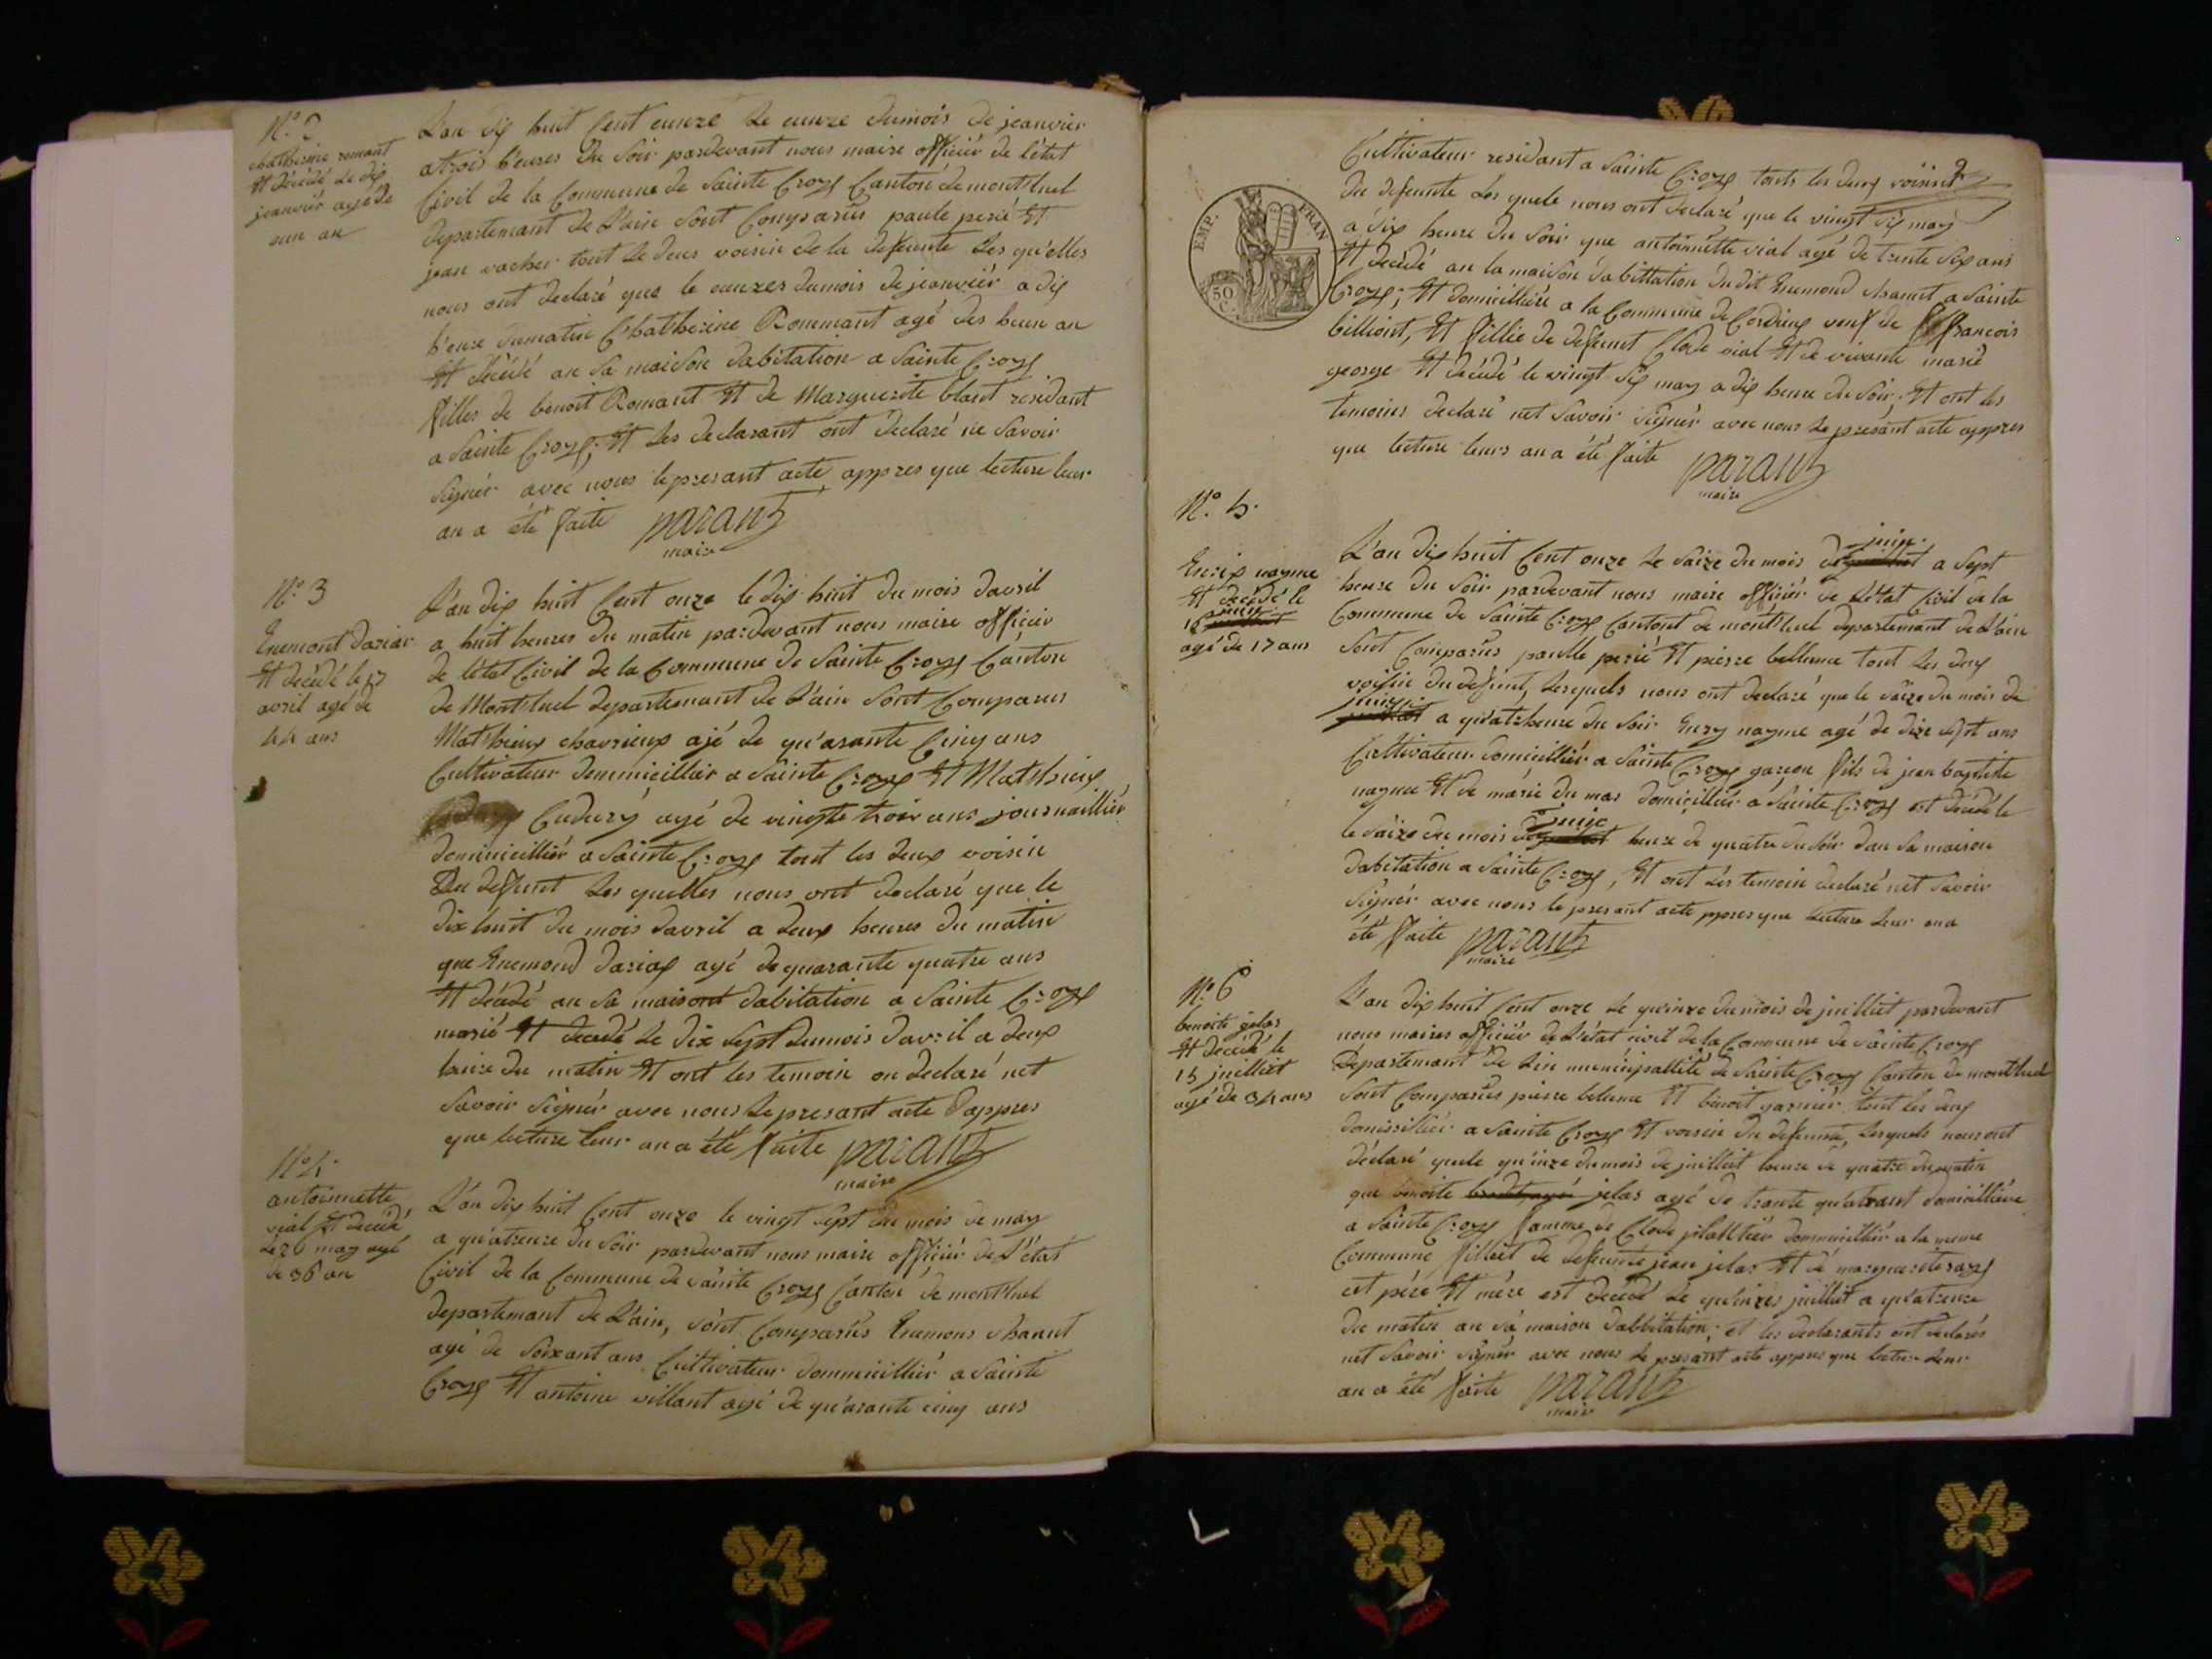 N.° 2
chatherine romant
Et décédé le dix
jeanvier agé de
eun an
L'an dix huit Cent eunze Le eunze dumois de jeanvier
atrois h'eures du Soir pardevant nous maire officiér de l'état
Civil de la Commune de Sainte Croyx Canton de montluel
departemant de L'ain Sont Comparûs paule perié Et
jean vacher tout Le deux voisin de la defeunte Les qu'elles
nous ont declaré que le eunzes dumois de jeanviér a dix
h'eure dumatin Chatherine Rommant agé des heun an
Et décédé an Sa maison dabitation a Sainte Croyx
filles de benoit Romant Et de Marguerite blant residant
a Sainte Croyx; Et Les declarant ont declaré ne Savoir
Signér avec nous le presant acte appres que lecture leur
an a été faite parant
maire
N.° 3
Enemont dariax
Et décédé le 17
avril agé de
44 ans
L'an dix huit Cent onze le dix huit du mois davril
a huit heures du matin pardevant nous maire officier
de l'état Civil de la Commune de Sainte Croyx Canton
de Montluel departemant de L'ain Sont Comparus
Matthieux chavrieux ajé de qu'arante Cinq ans
Cultivateur demmicilliér a Sainte Croyx Et Matthieux
Cudury ayé de vingte troix ans journailliér
domiicilliér a Sainte Croyx tout les deux voisin
Du defunt Les quelles nous ont declaré que le
dix huit du mois davril a deux heures du matin
que Enemond dariax ayé de quarante quatre ans
Et décédé an Sa maisont dabitation a Sainte Croyx
marié Et decedé Le dix Sept dumois davril a deux
heure du matin Et ont les temoin on declaré net
Savoir Signér avec nous Le presant acte dappres
que lecture leur an a été faite parant
maire
N.° 4.
antoinnette
vial Et decédé
Le 26 may agé
de 36 an
L'an dix huit Cent onze le vingt Sept du mois de may
a qu'atreure du Soir pardevant nous maire officiér de L'état
Civil de la Commune de Sainte Croyx Canton de montluel
departemant de L'ain, Sont Comparûs Enemons chanut
ayé de Soixant ans Cultivateur dommicilliér a Sainte
Croyx Et antoine villant agé de qu'arante cinq ans
2
EMP. FRAN
50
C.
Cultivateur residant a Sainte Croyx touts les deux voisint
du defeunte Les quele nous ont declaré que le vingt Six may
a dix heure du Soir que antoinnette vial agé de trente Six ans
Et decédé an la maison dabittation du dit Enemond chanut a Sainte
Croyx; Et domicilliére a la Commune de Cordieux veuf de francois
billiont, Et fillie de defeunt Clode vial Et de vivante marie
george Et décédé le vingt Six may a dix heure du Soir, Et ont les
temoins declaré net Savoir Signér avec nous Le présant acte appres
que lecture leurs an a été faite parant
maire
N.° 5.
Enrix nayme
Et décédé le
juin
16 juilliet
agé de 17 ans
L'an dix huit Cent onze Le Saize du mois de juin juilliet a Sept
heure du Soir pardevant nous maire officiér de L'état Civil de la
Commune de Sainte Croyx Cantont de montluel departemant de L'ain
Sont Comparûs paulle perié Et pierre bellume tout Les deux
voisin du defunt, Lesquels nous ont declaré que le Saize du mois de
juin juilliet a qu'atrheure du Soir Enry nayme agé de dixe Sept ans
Cultivateur domicilliér a Sainte Croyx garcon fils de jean baptiste
nayme Et de marie du mas domicilliér a Sainte Croyx est decédé le
le Saize du mois de juin juilliet heure de quatre du Soir dan Sa maison
dabitation a Sainte Croyx, Et ont Les temoin declaré net Savoir
Signér avec nous le presant acte ppres que Lecture Leur an a
été faite parant
maire
N.° 6
benoite jelas
Et decédé le
15 juilliet
agé de 34 ans
L'an dix huit Cent onze Le quinze du mois de juilliet pardevant
nous maires officiér de L'état civil de la Commune de Sainte Croyx
Departemant de Lin munisipallité de Sainte Croyx Canton de montluel
Sont Comparûs pierre belume Et benoit garniér tout les deux
domicilliér a Sainte Croyx Et voisin du defeunte, Lesquels nous ont
déclaré quele qu'inze du mois de juilliet heure de quatre du matin
que benoite jelas agé de trante qu'atreant domicilliére
a Sainte Croyx famme de Clode plattiér dommicilliér a la meme
Commune filliet de defeunte jean jelas Et de marguerite rayx
cet pére Et mére est decédé Le qu'inzes juilliet a qu'atreure
du matin an Sa maison dabbitation; et les declarants ont declarés
net Savoir Signér avec nous Le presant acte appres que lecture Leur
an a été faite parant
maire